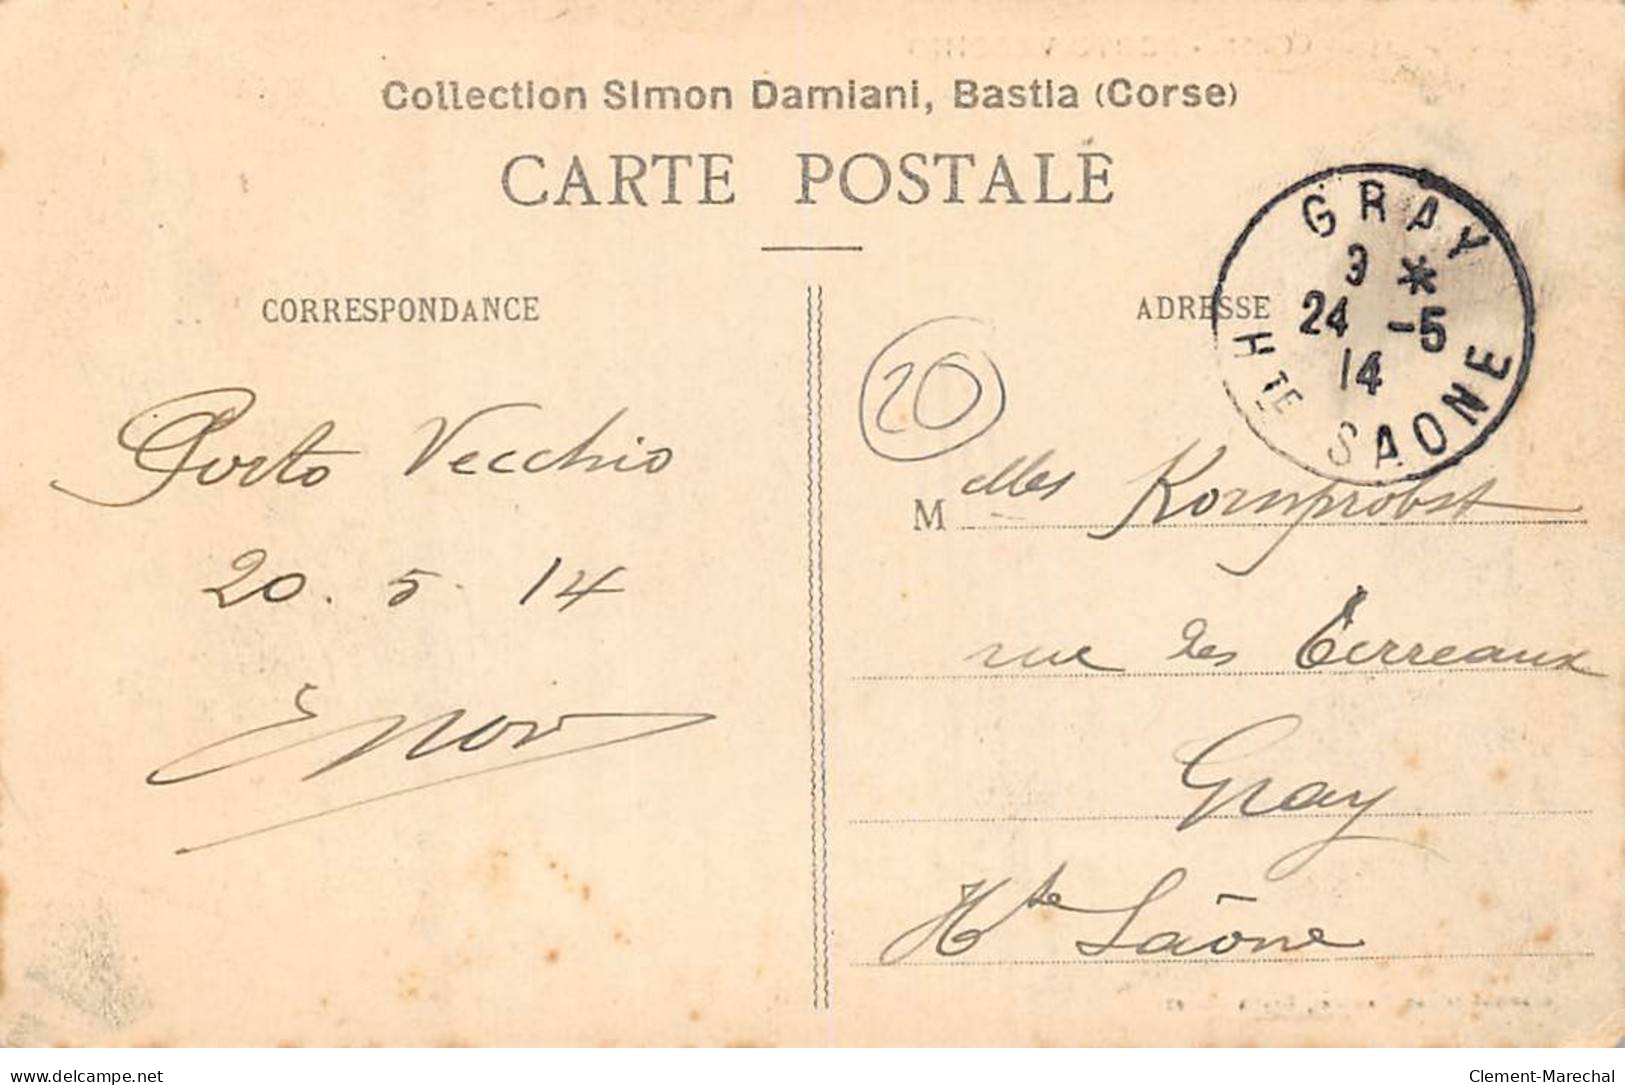 Collection Simon Damiani, Bastia (Corse)
CARTE POSTALE
CORRESPONDANCE
ADRESSE
GRAY
3 *
24 -5
14
Hte SAONE
20
Porto Vecchio
20. 5. 14
Melles Kornprobst
rue des Terreaux
Gray
Hte Saône
delcampe.net
Clement-Marechal